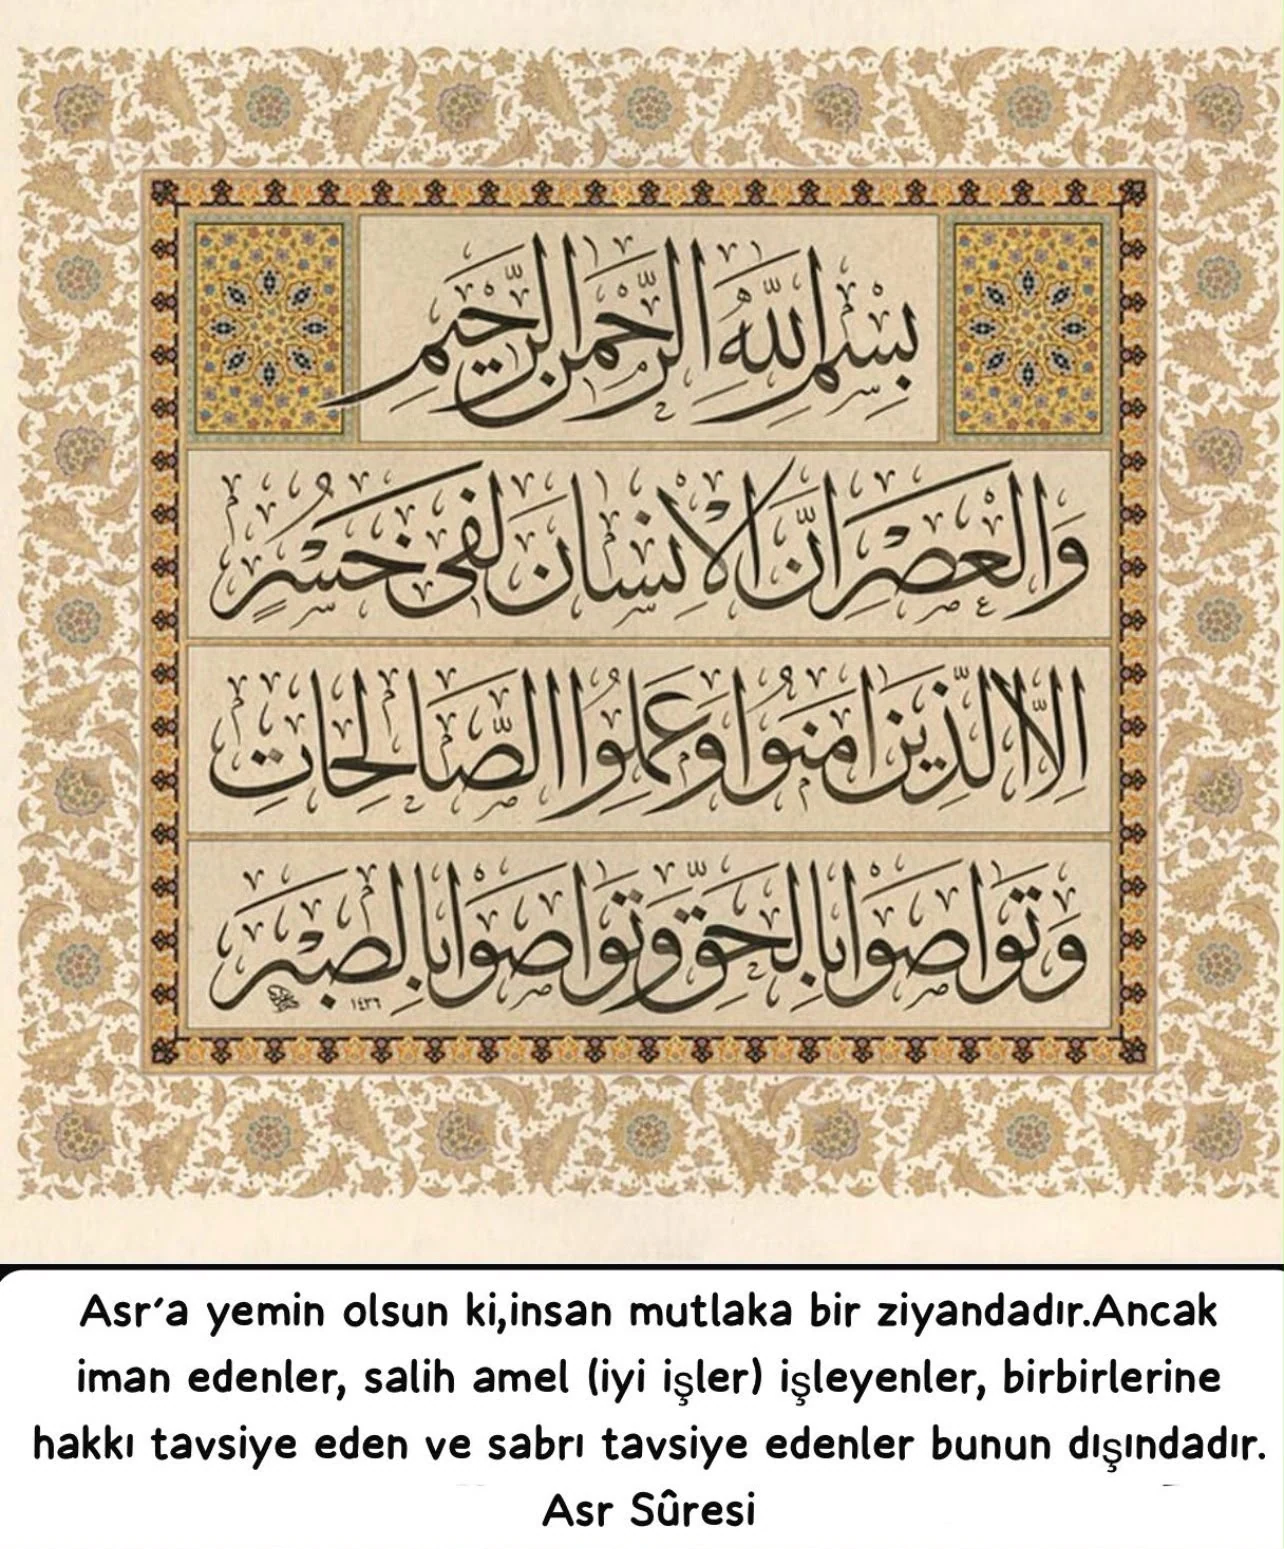 بِسْمِ اللّٰهِ الرَّحْمٰنِ الرَّحِيمِ
وَالْعَصْرِ اِنَّ الْاِنْسَانَ لَفِى خُسْرٍ
اِلَّا الَّذِينَ اٰمَنُوا وَعَمِلُوا الصَّالِحَاتِ
وَتَوَاصَوْا بِالْحَقِّ وَتَوَاصَوْا بِالصَّبْرِ
١٤٣٦
Asr'a yemin olsun ki,insan mutlaka bir ziyandadır.Ancak
iman edenler, salih amel (iyi işler) işleyenler, birbirlerine
hakkı tavsiye eden ve sabrı tavsiye edenler bunun dışındadır.
Asr Sûresi